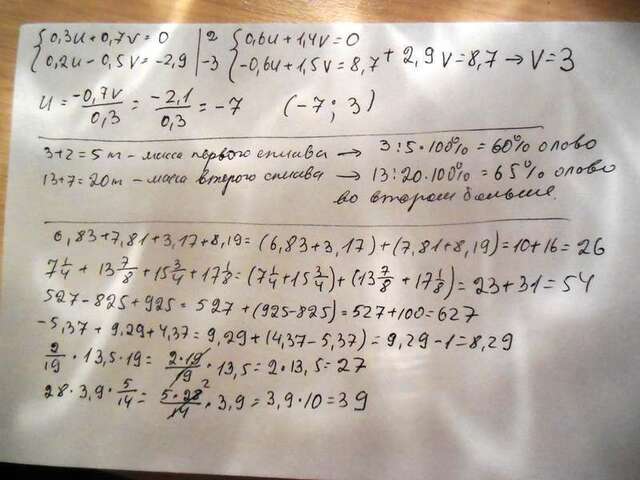 {0,3u+0,7v=0 |2 {0,6u+1,4v=0
{0,2u-0,5v=-2,9 |-3 {-0,6u+1,5v=8,7 + 2,9v=8,7 → v=3
u = -0,7v/0,3 = -2,1/0,3 = -7 (-7; 3)
3+2=5т - масса первого сплава → 3:5·100% = 60% олово
13+7=20т - масса второго сплава → 13:20·100% = 65% олово
во втором больше.
6,83+7,81+3,17+8,19=(6,83+3,17)+(7,81+8,19)=10+16=26
7 1/4 + 13 7/8 + 15 3/4 + 17 1/8 = (7 1/4 + 15 3/4) + (13 7/8 + 17 1/8) = 23+31=54
527-825+925= 527+(925-825)=527+100=627
-5,37+9,29+4,37= 9,29+(4,37-5,37)=9,29-1=8,29
2/19 · 13,5·19= 2·19/19 · 13,5=2·13,5=27
28·3,9·5/14= 5·28²/14 · 3,9=3,9·10=39